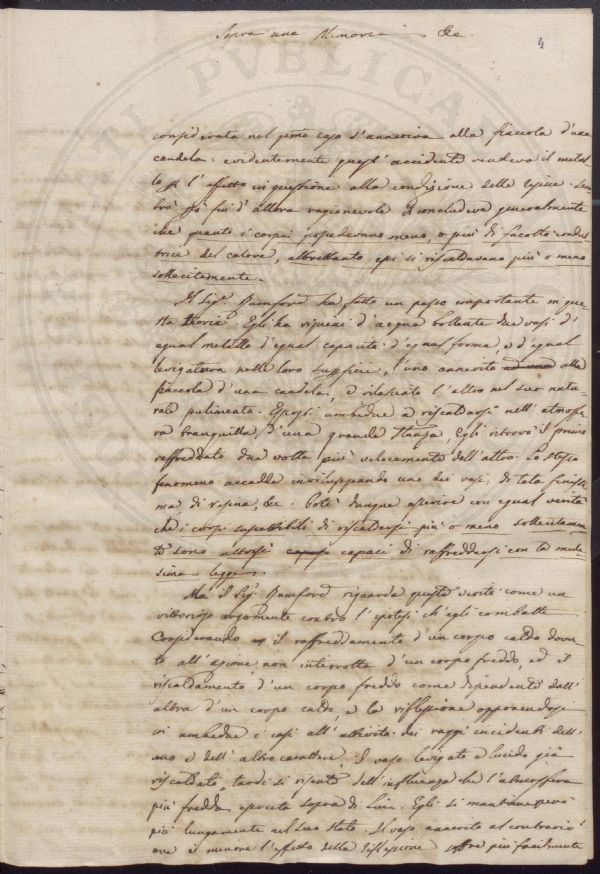 Sopra una Memoria &c.
4
considerata nel primo caso s'anneriva alla fiaccola d'una
candela: evidentemente quest'accidente rendeva il metal-
lo p. l'effetto in questione alla condizione delle
brò fin d'allora ragionevole il concludere generalmente
che quanto i corpi possedevano meno, o più di facoltà condut-
trice del calore, altrettanto essi si riscaldavano più o meno
sollecitamente.
Il Sig.r Rumford ha fatto un passo importante in que-
sta teoria. Egli ha ripieni d'acqua bollente due vasi d'
egual metallo d'egual capacità d'egual forma, e d'egual
levigatezza nelle loro superficie, l'uno annerito alla
fiaccola d'una candela, e rilasciato l'altro nel suo natu-
rale pulimento. Esposti ambedue a riscaldarsi nell'atmosfe-
ra tranquilla d'una grande stanza, Egli ritrovò il primo
raffreddato due volte più velocemente dell'altro. Lo stesso
fenomeno accadde inviluppando uno dei vasi, di tela finissi-
ma, di resina, &c. Potè dunque asserire con egual verità
che i corpi suscettibili di riscaldarsi più o meno sollecitamen-
te sono altresì capaci di raffreddarsi con la mede-
sima legge.
Ma il Sig.r Rumford riguarda queste verità come un
vittorioso argomento contro l'ipotesi ch'egli combatte.
Considerando il raffreddamento d'un corpo caldo dovu-
to all'azione non interrotta d'un corpo freddo, ed il
riscaldamento d'un corpo freddo come dipendente dall'
altra d'un corpo caldo, e la riflessione opponendosi
in ambedue i casi all'attività dei raggi incidenti dell'
uno e dell'altro carattere, il vaso levigato e lucido già
riscaldato, tardi si risente dell'influenza che l'atmosfera
più fredda esercita sopra di Lui. Egli si mantiene però
più lungamente nel suo stato. Il vaso annerito al contrario
ove è minore l'effetto della riflessione soffre più facilmente